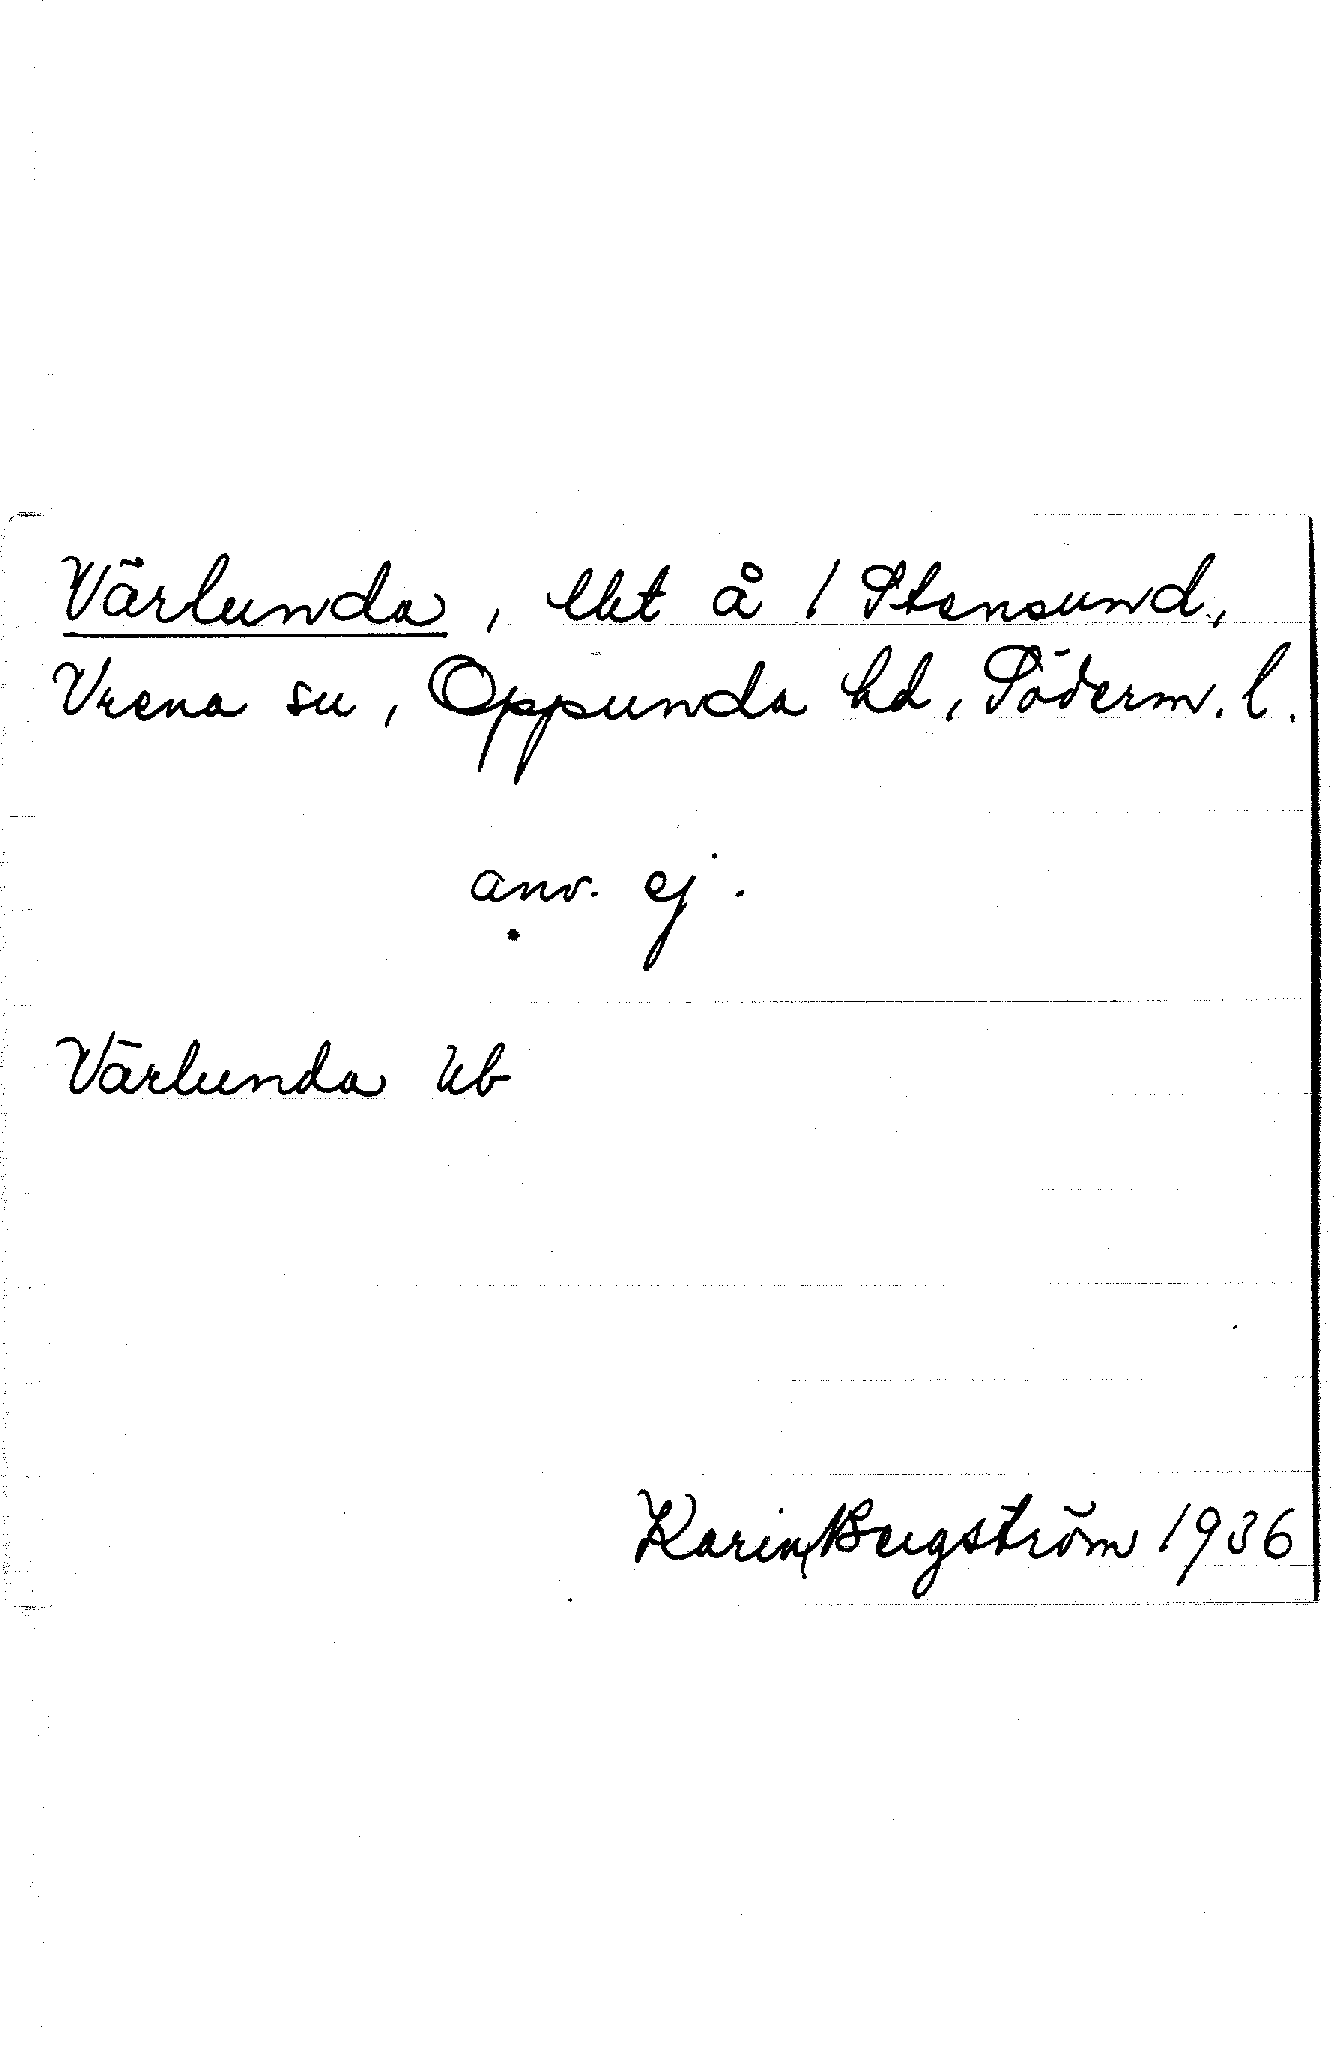 Värlunda, lht å 1 Stensund,
Vrena sn, Oppunda hd, Söderm. l.
anv. ej.
Värlunda Ub
Karin Bergström 1936